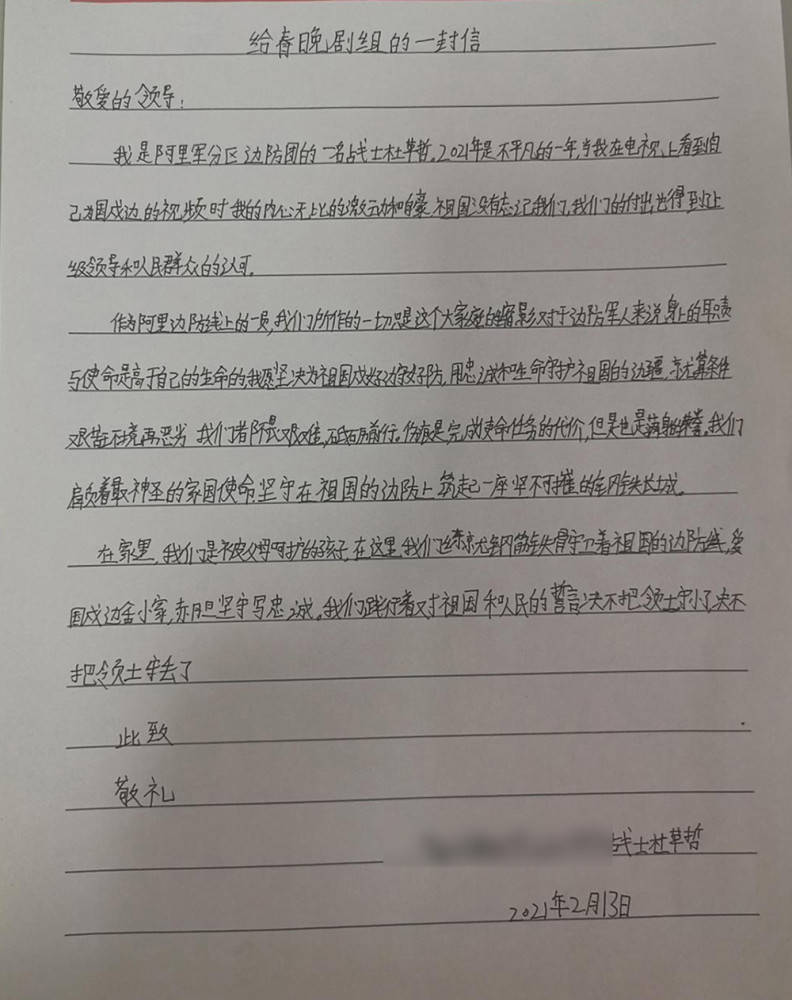 给春晚剧组的一封信
敬爱的领导:
我是阿里军分区边防团的一名战士杜草哲。2021年是不平凡的一年,当我在电视上看到自
己为国戍边的视频时我的内心无比的激动和自豪 祖国没有忘记我们,我们的付出也得到了上
级领导和人民群众的认可。
作为阿里边防线上的一员,我们所作的一切只是这个大家庭的缩影对于边防军人来说身上的职责
与使命是高于自己的生命的我愿坚决为祖国戍好边守好防,用忠诚和生命守护祖国的边疆,就算条件
艰苦环境再恶劣 我们都不畏艰难,砥砺前行。伤痕是完成使命任务的代价,但是也是满身的荣誉。我们
肩负着最神圣的家国使命坚守在祖国的边防上筑起一座坚不可摧的钢铁长城。
在家里,我们是被父母呵护的孩子,在这里,我们这群就钢筋铁骨守卫着祖国的边防线,爱
国戍边舍小家,赤胆坚守写忠诚。我们践行着对祖国和人民的誓言决不把领土守小了决不
把领土守丢了
此致
敬礼
战士杜草哲
2021年2月13日